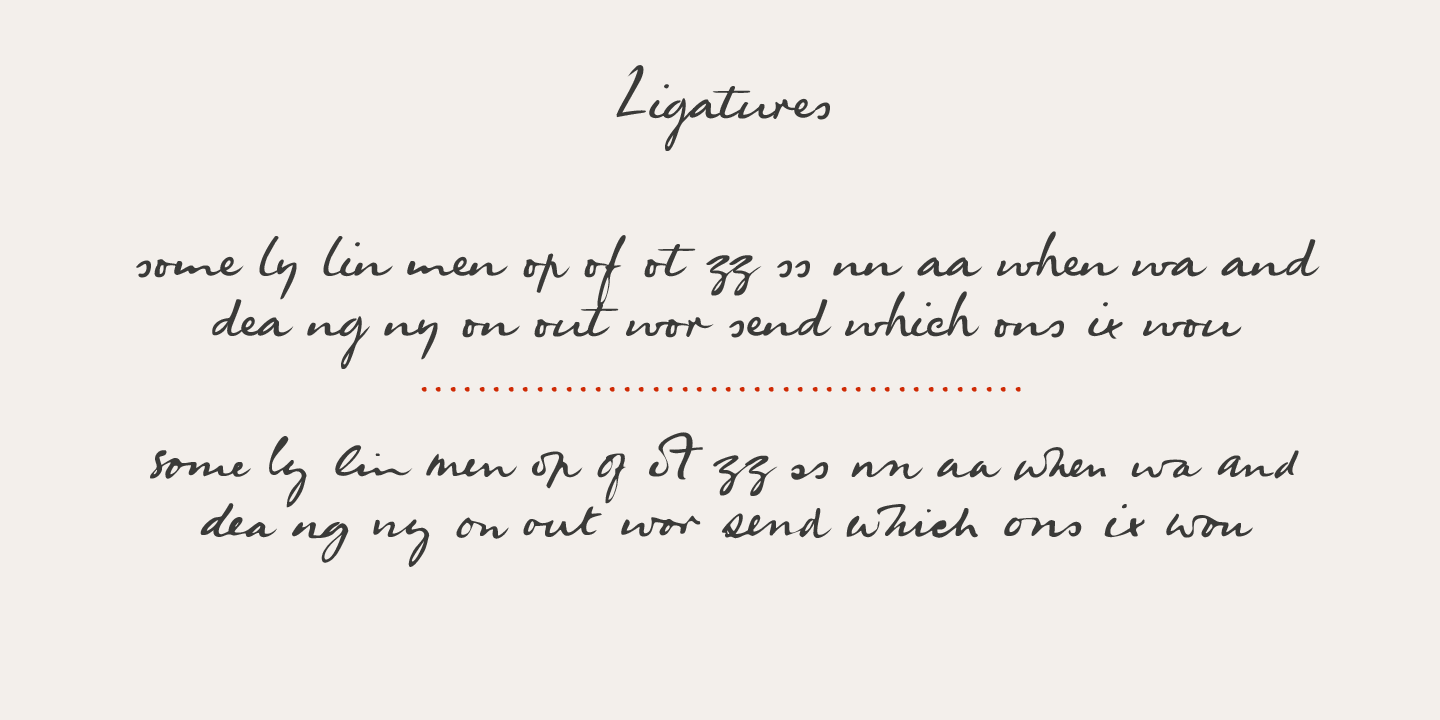 Ligatures
some ly lin men op of ot zz ss nn aa when wa and
dea ng ny on out wor send which ons ix wou
some ly lin men op of ot zz ss nn aa when wa and
dea ng ny on out wor send which ons ix wou